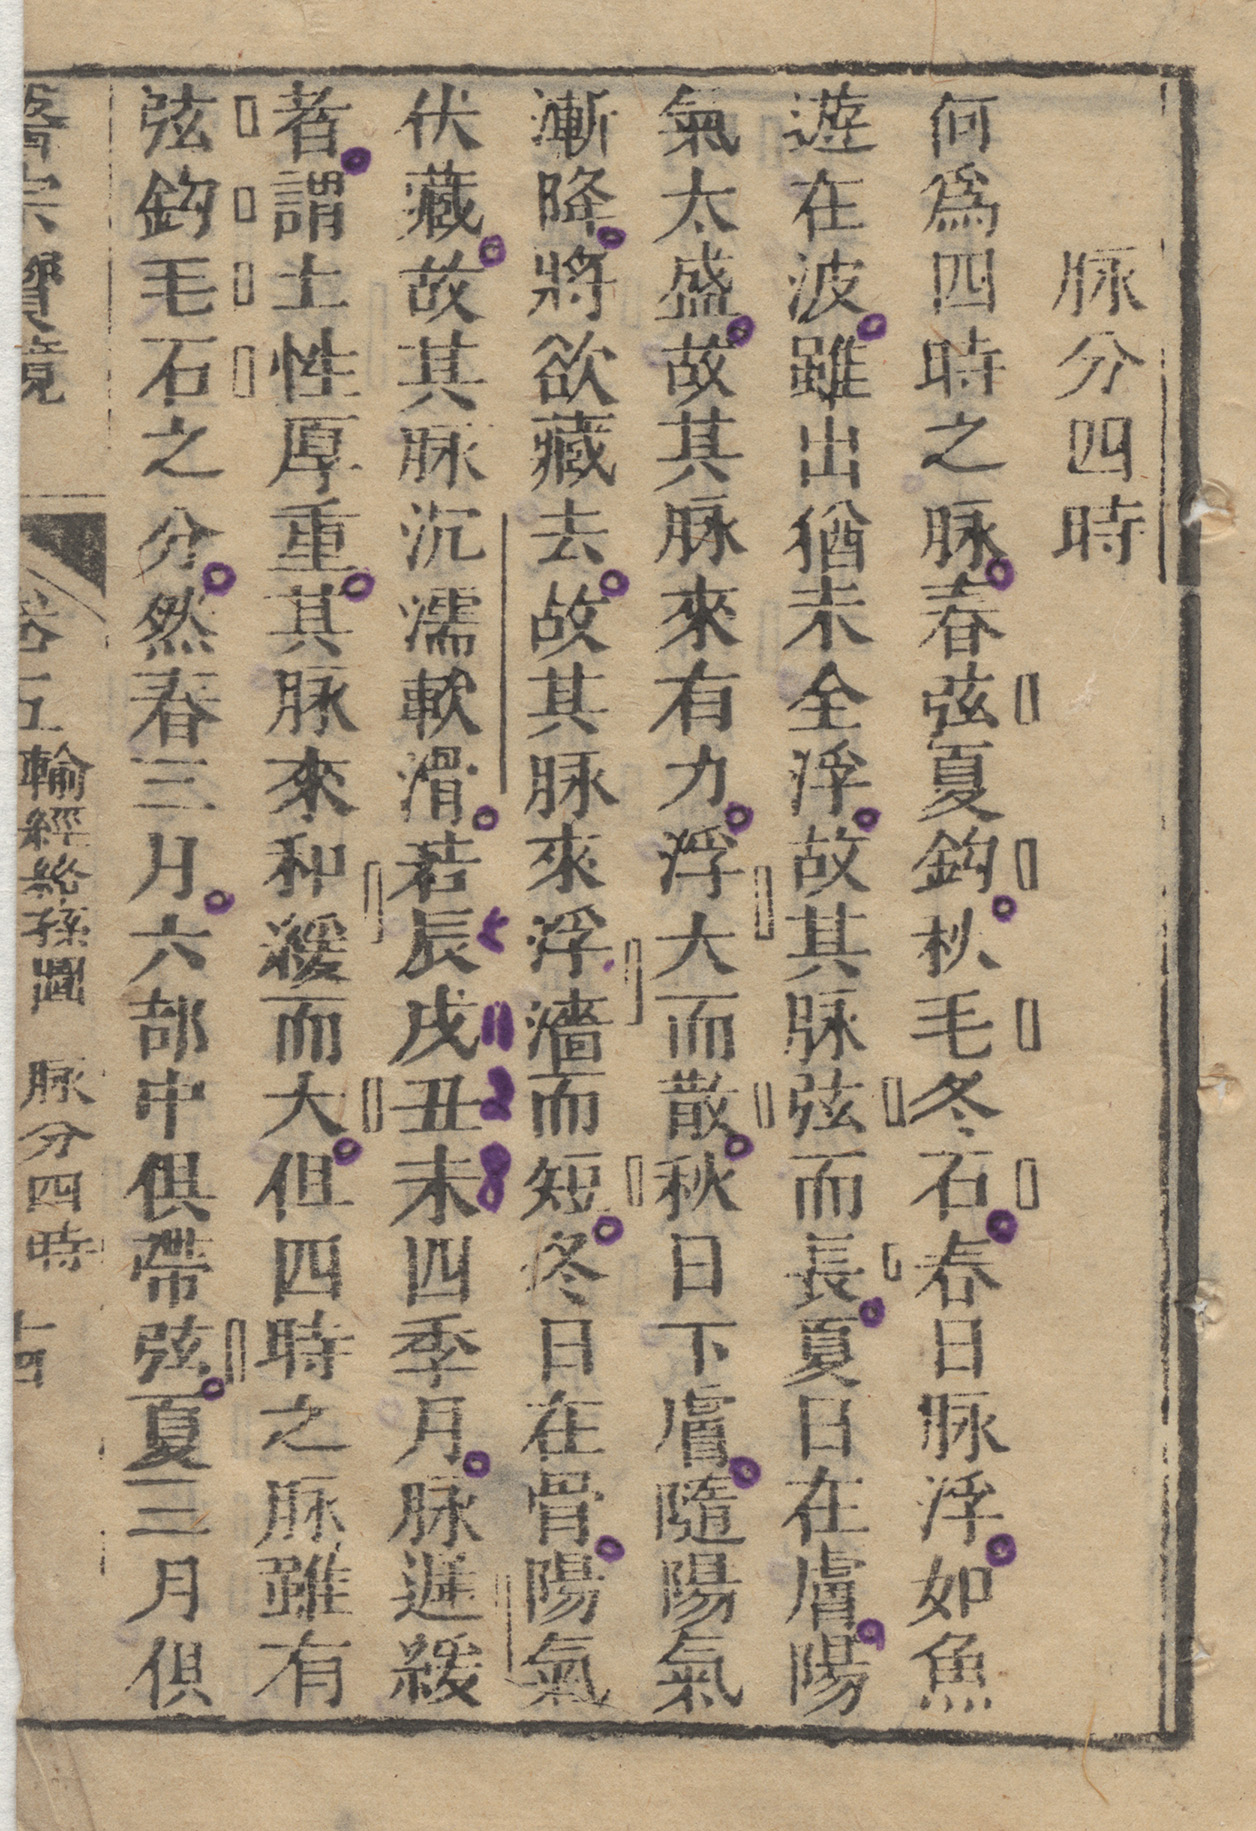 脉分四時
何爲四時之脉春弦夏鈎秋毛冬石春日脉浮如魚
遊在波雖出猶未全浮故其脉弦而長夏日在膚陽
氣太盛故其脉來有力浮大而散秋日下膚隨陽氣
漸降將欲藏去故其脉來浮濇而短冬日在骨陽氣
伏藏故其脉沉濡軟滑若辰戌丑未四季月脉遲緩
者謂土性厚重其脉來和緩而大但四時之脉雖有
弦鈎毛石之分然春三月六部中俱帶弦夏三月俱
醫宗寶鏡 卷五 輸經絡孫圖 脉分四時 十四